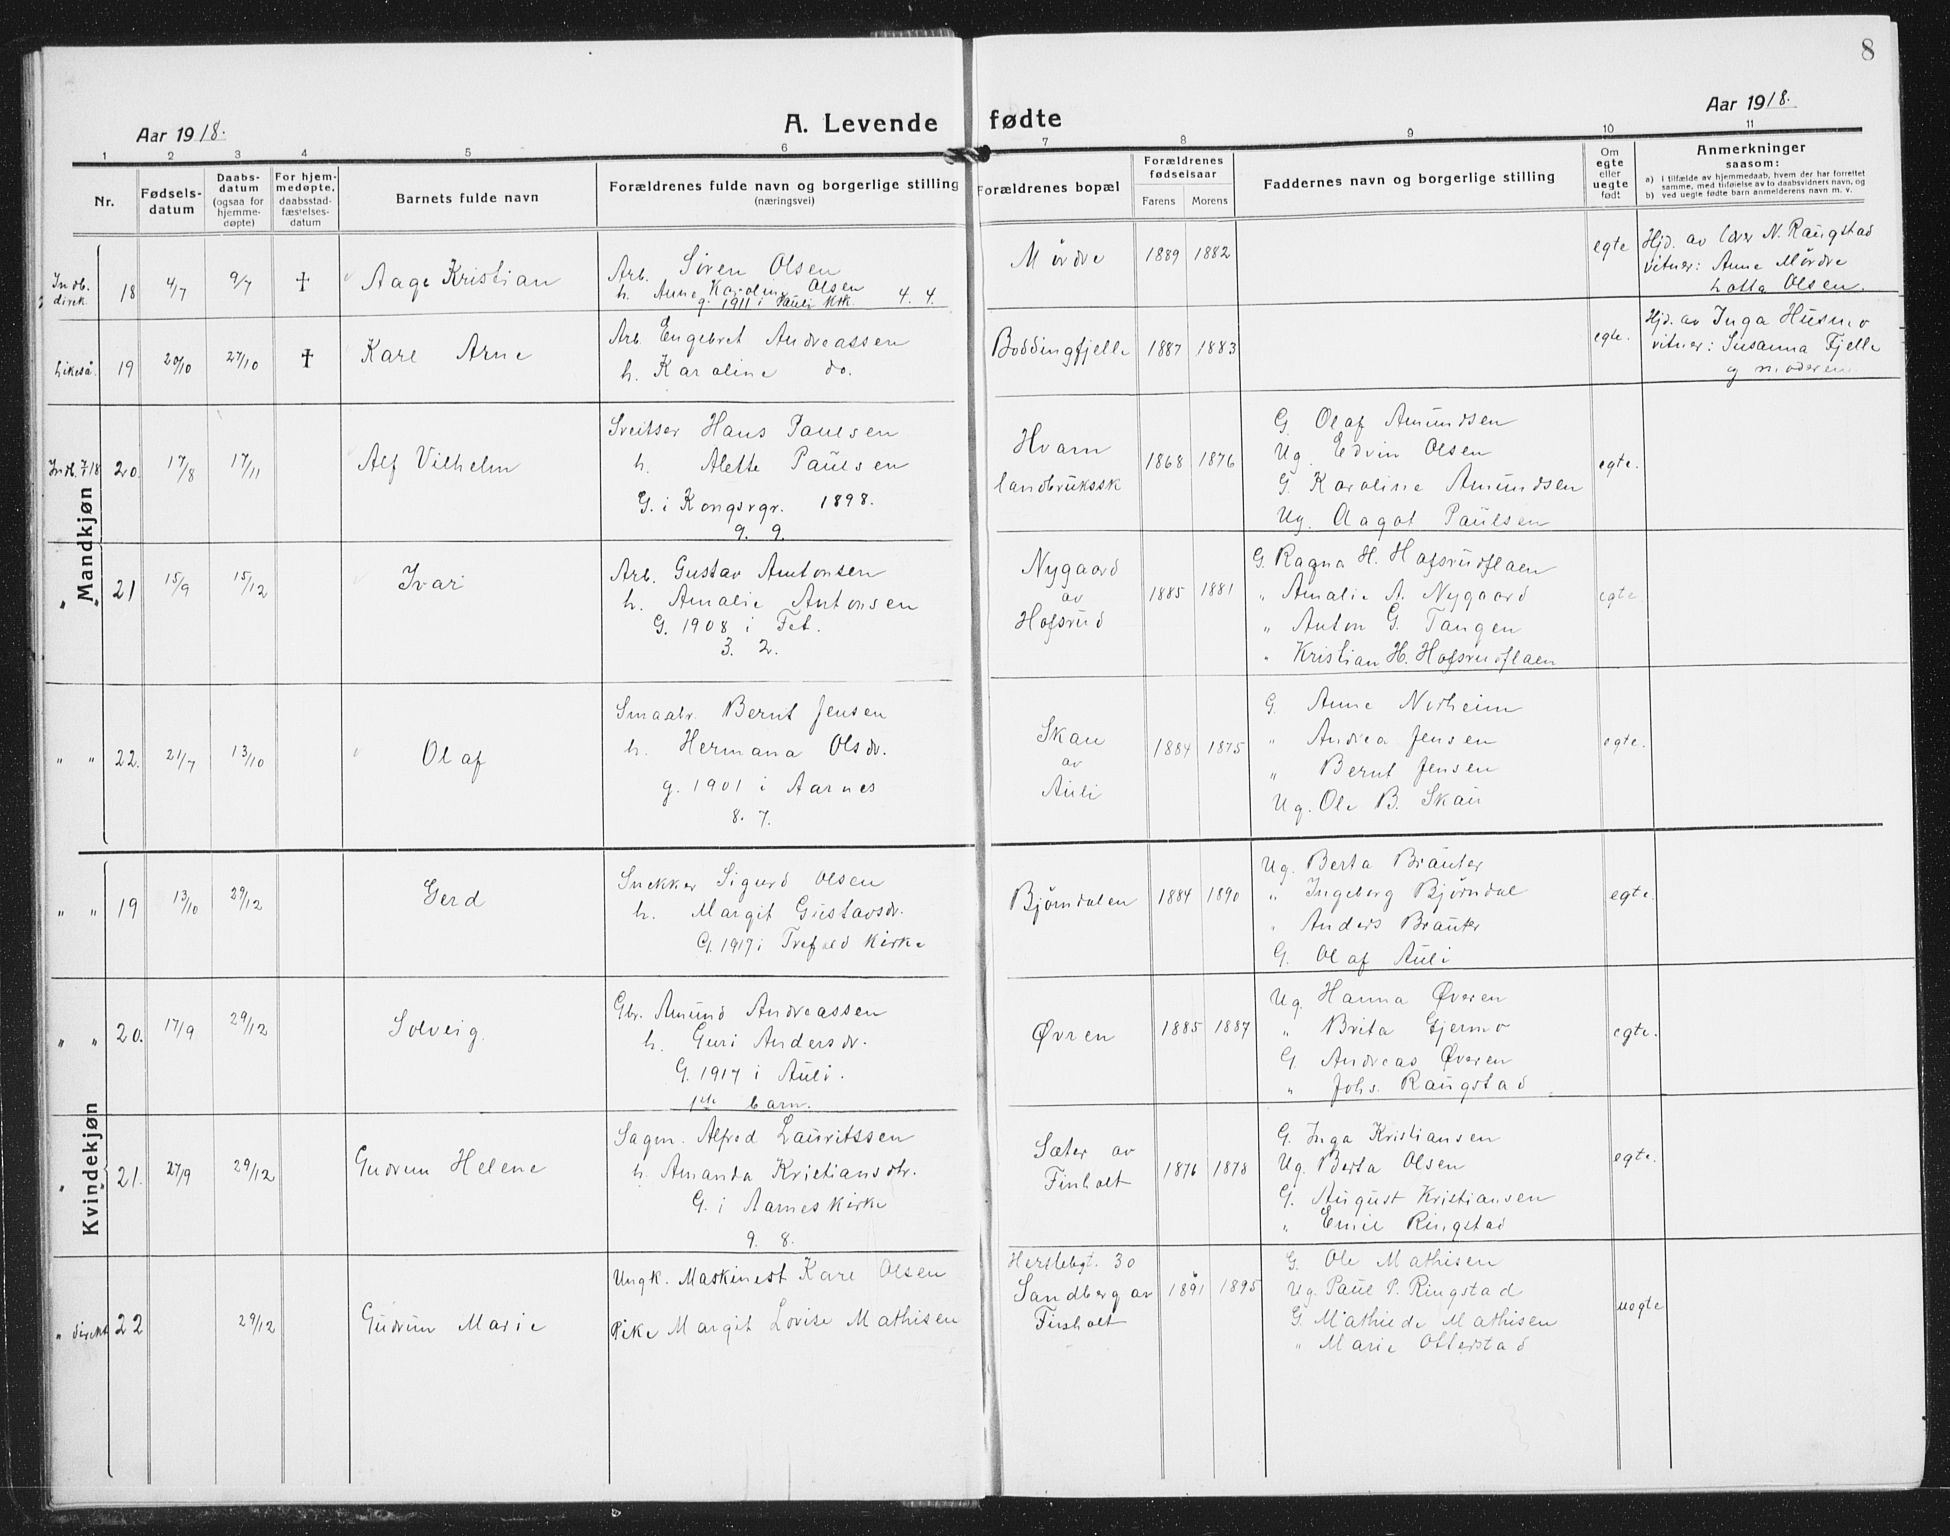 8
Aar 1918.
A. Levende fødte
Aar 1918.
1 2 3 4 5 6 7 8 9 10 11
Nr.
Fødsels-
datum
Daabs-
datum
(ogsaa for
hjemme-
døpte)
For hjem-
medøpte,
daabsstad-
fæstelses-
datum
Barnets fulde navn
Forældrenes fulde navn og borgerlige stilling
(næringsvei)
Forældrenes bopæl
Forældrenes
fødselsaar
Farens Morens
Faddernes navn og borgerlige stilling
Om
egte
eller
uegte
født
Anmerkninger
saasom:
a) i tilfælde av hjemmedaab, hvem der har forrettet
samme, med tilføielse av to daabsvidners navn, og
b) ved uegte fødte barn anmelderens navn m. v.
Mandkjøn
Indb.
direk.
18 4/7 9/7 † Aage Kristian
Arb. Søren Olsen
h. Anne Karoline Olsen
g. 1911 i Pauli Kik 4. 4.
Mørdre 1889 1882
egte
Hjd. av lærer N. Raugstad
vitner: Anne Mørdre
Lotta Olsen.
Likeså. 19 20/10 27/10 † Kare Arne
Arb. Engebret Andreassen
h. Karoline do.
Boddingfjelle 1887 1883
egte.
Hjd. av Inga Husmo
vitner: Susanna Fjelle
og moderen
Indb. 7/18 20. 17/8 17/11 Alf Vilhelm
Sveitser Hans Paulsen
h. Alette Paulsen
G. i Kongsvgr. 1898.
9. 9.
Hvam
landbrukssk
1868 1876
G. Olaf Amundsen
Ug. Edvin Olsen
G. Karoline Amundsen
Ug. Aagot Paulsen
egte.
" " 21 15/9 15/12 Ivar
Arb. Gustav Antonsen
h. Amalie Antonsen
G. 1908 i Fet.
3. 2.
Nygaard
av
Hofsrud
1885 1881
G. Ragna H. Hofsrudflaen
" Amalie A. Nygaard
" Anton G. Tangen
" Kristian H. Hofsrudflaen
egte
" " 22. 21/7 13/10 Olaf
Smaabr. Bernt Jensen
h. Hermana Olsdr.
g. 1901 i Aarnes
8. 7.
Skau
av
Auli
1884 1875
G. Anne Norheim
" Andrea Jensen
" Bernt Jensen
Ug. Ole B. Skau
egte.
Kvindekjøn
" " 19 13/10 29/12 Gerd
Snekker Sigurd Olsen
h. Margit Gustavsdr.
G. 1917 i Trefold Kirke
Bjørndalen 1884 1890
Ug. Berta Brauter
" Ingeborg Bjørndal
" Anders Brauter
G. Olaf Auli
egte.
" " 20. 17/9 29/12 Solveig
Gbr. Amund Andreassen
h. Guri Andersdr.
G. 1917 i Auli.
1ste barn.
Øvren 1885 1887
Ug. Hanna Øvren
" Brita Gjermo
G. Andreas Øvren
" Johs. Raugstad
egte.
" " 21. 27/9 29/12 Gudrun Helene
Sagm. Alfred Lauritssen
h. Amanda Kristiansdtr.
G. i Aarnes Kirke
9. 8.
Sæter av
Finholt
1876 1878
G. Inga Kristiansen
Ug. Berta Olsen
G. August Kristiansen
" Emil Ringstad
egte.
" direkt 22 29/12 Gudrun Marie
Ungk. Maskinest Kare Olsen
Pike Margit Lovise Mathisen
Herslebgt. 30
Sandberg av
Finholt
1891 1895
G. Ole Mathisen
Ug. Paul P. Ringstad
G. Mathilde Mathisen
" Marie Otterstad
uegte